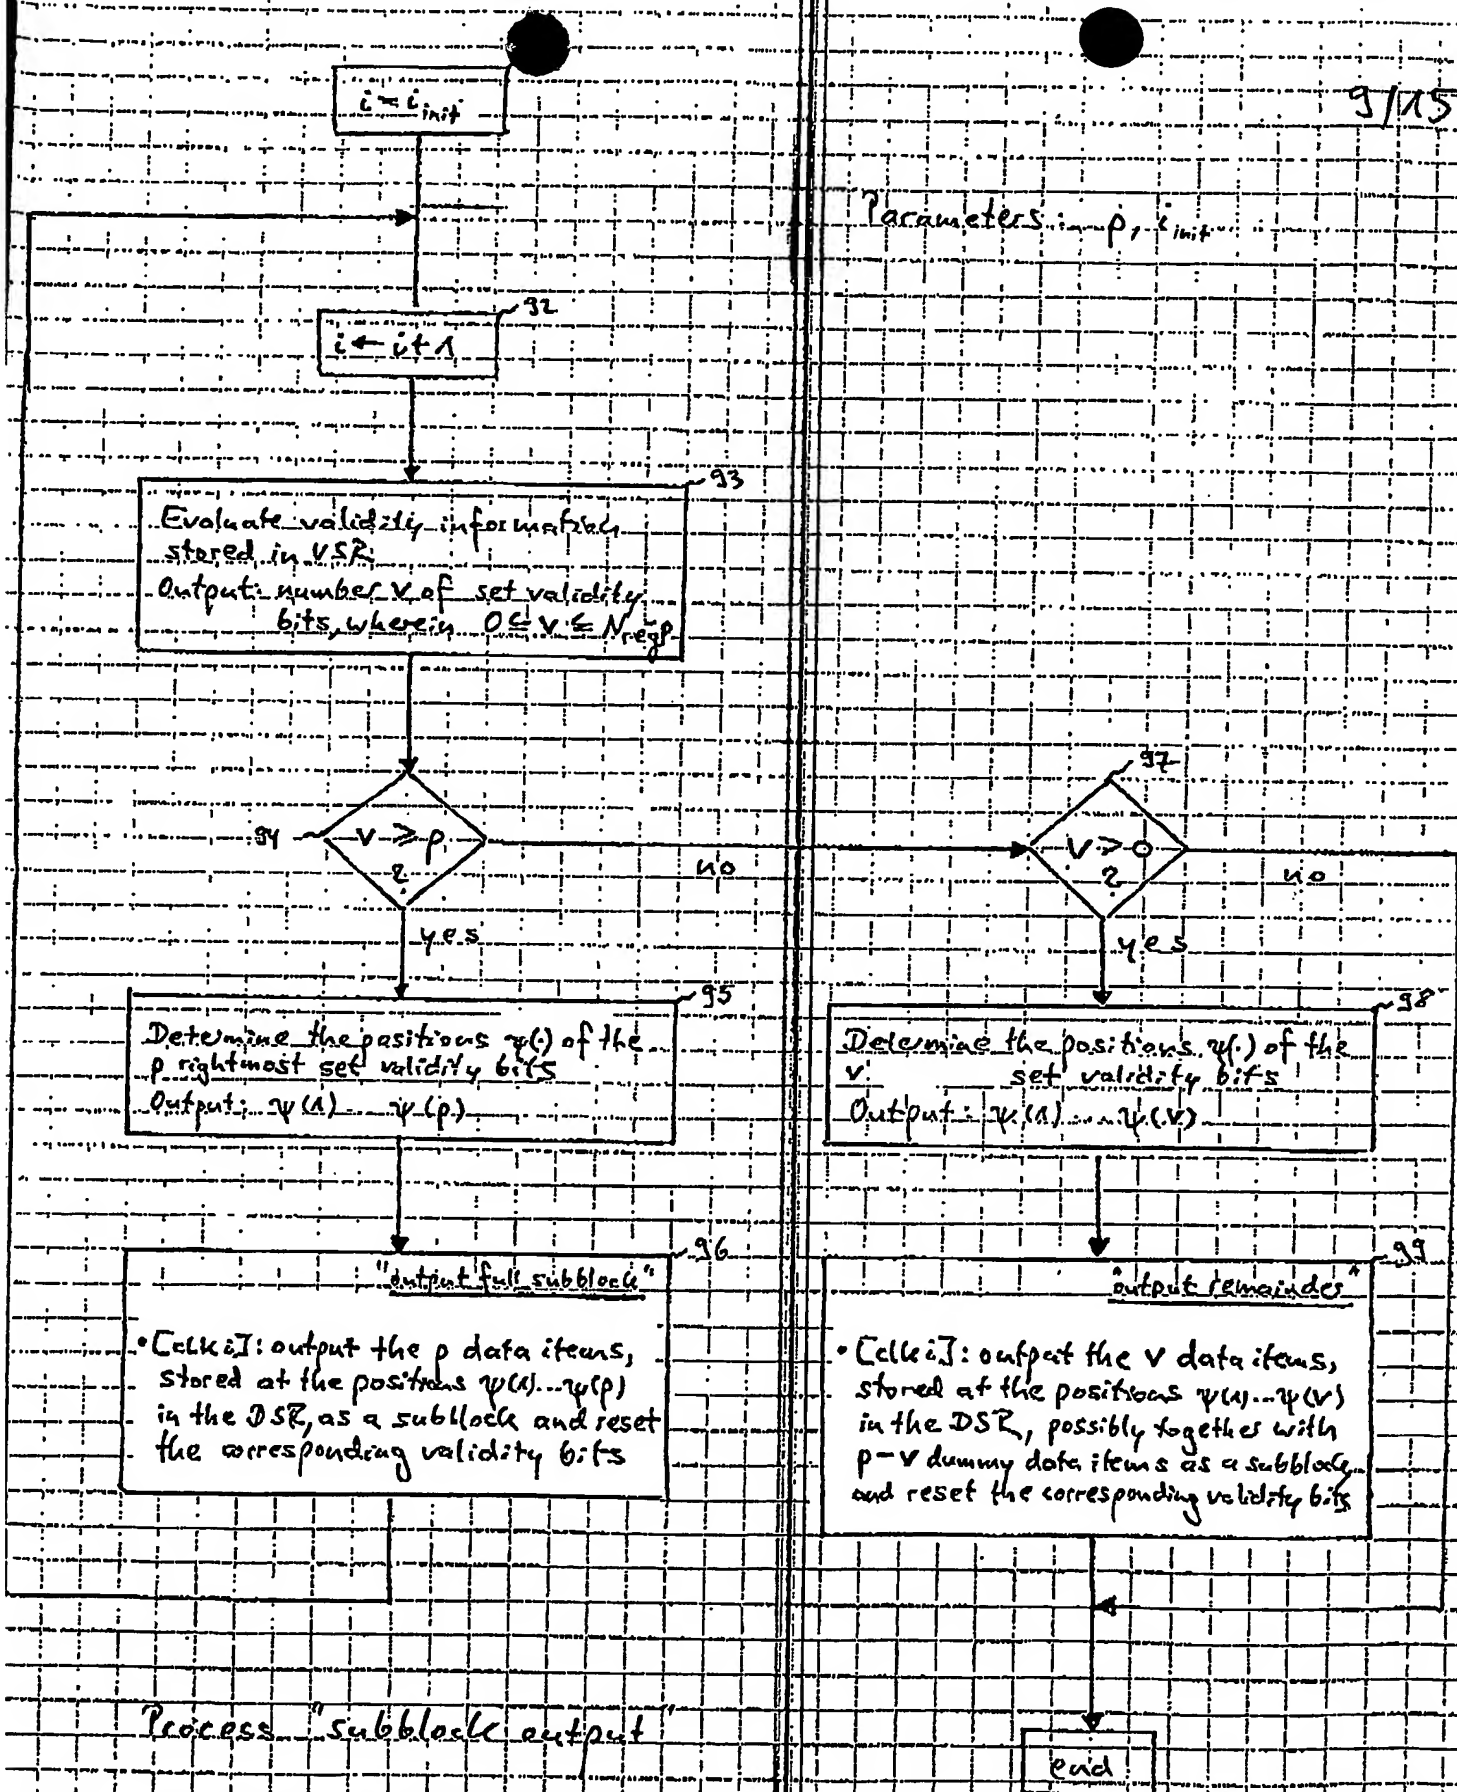 i = i_init
9/15
Parameters: p, i_init
92
i ← i + 1
93
Evaluate validity information
stored in VSR
Output: number v of set validity
bits, wherein 0 ≤ v ≤ N_regP
94
v ≥ p
?
no
yes
97
v > 0
?
no
yes
95
Determine the positions ψ(.) of the
p rightmost set validity bits
Output: ψ(1) ... ψ(p)
98
Determine the positions ψ(.) of the
v set validity bits
Output: ψ(1) ... ψ(v)
96
"output full subblock"
• [clk i]: output the p data items,
stored at the positions ψ(1)...ψ(p)
in the DSR, as a subblock and reset
the corresponding validity bits
99
"output remainder"
• [clk i]: output the v data items,
stored at the positions ψ(1)...ψ(v)
in the DSR, possibly together with
p-v dummy data items as a subblock
and reset the corresponding validity bits
Process "subblock output"
end